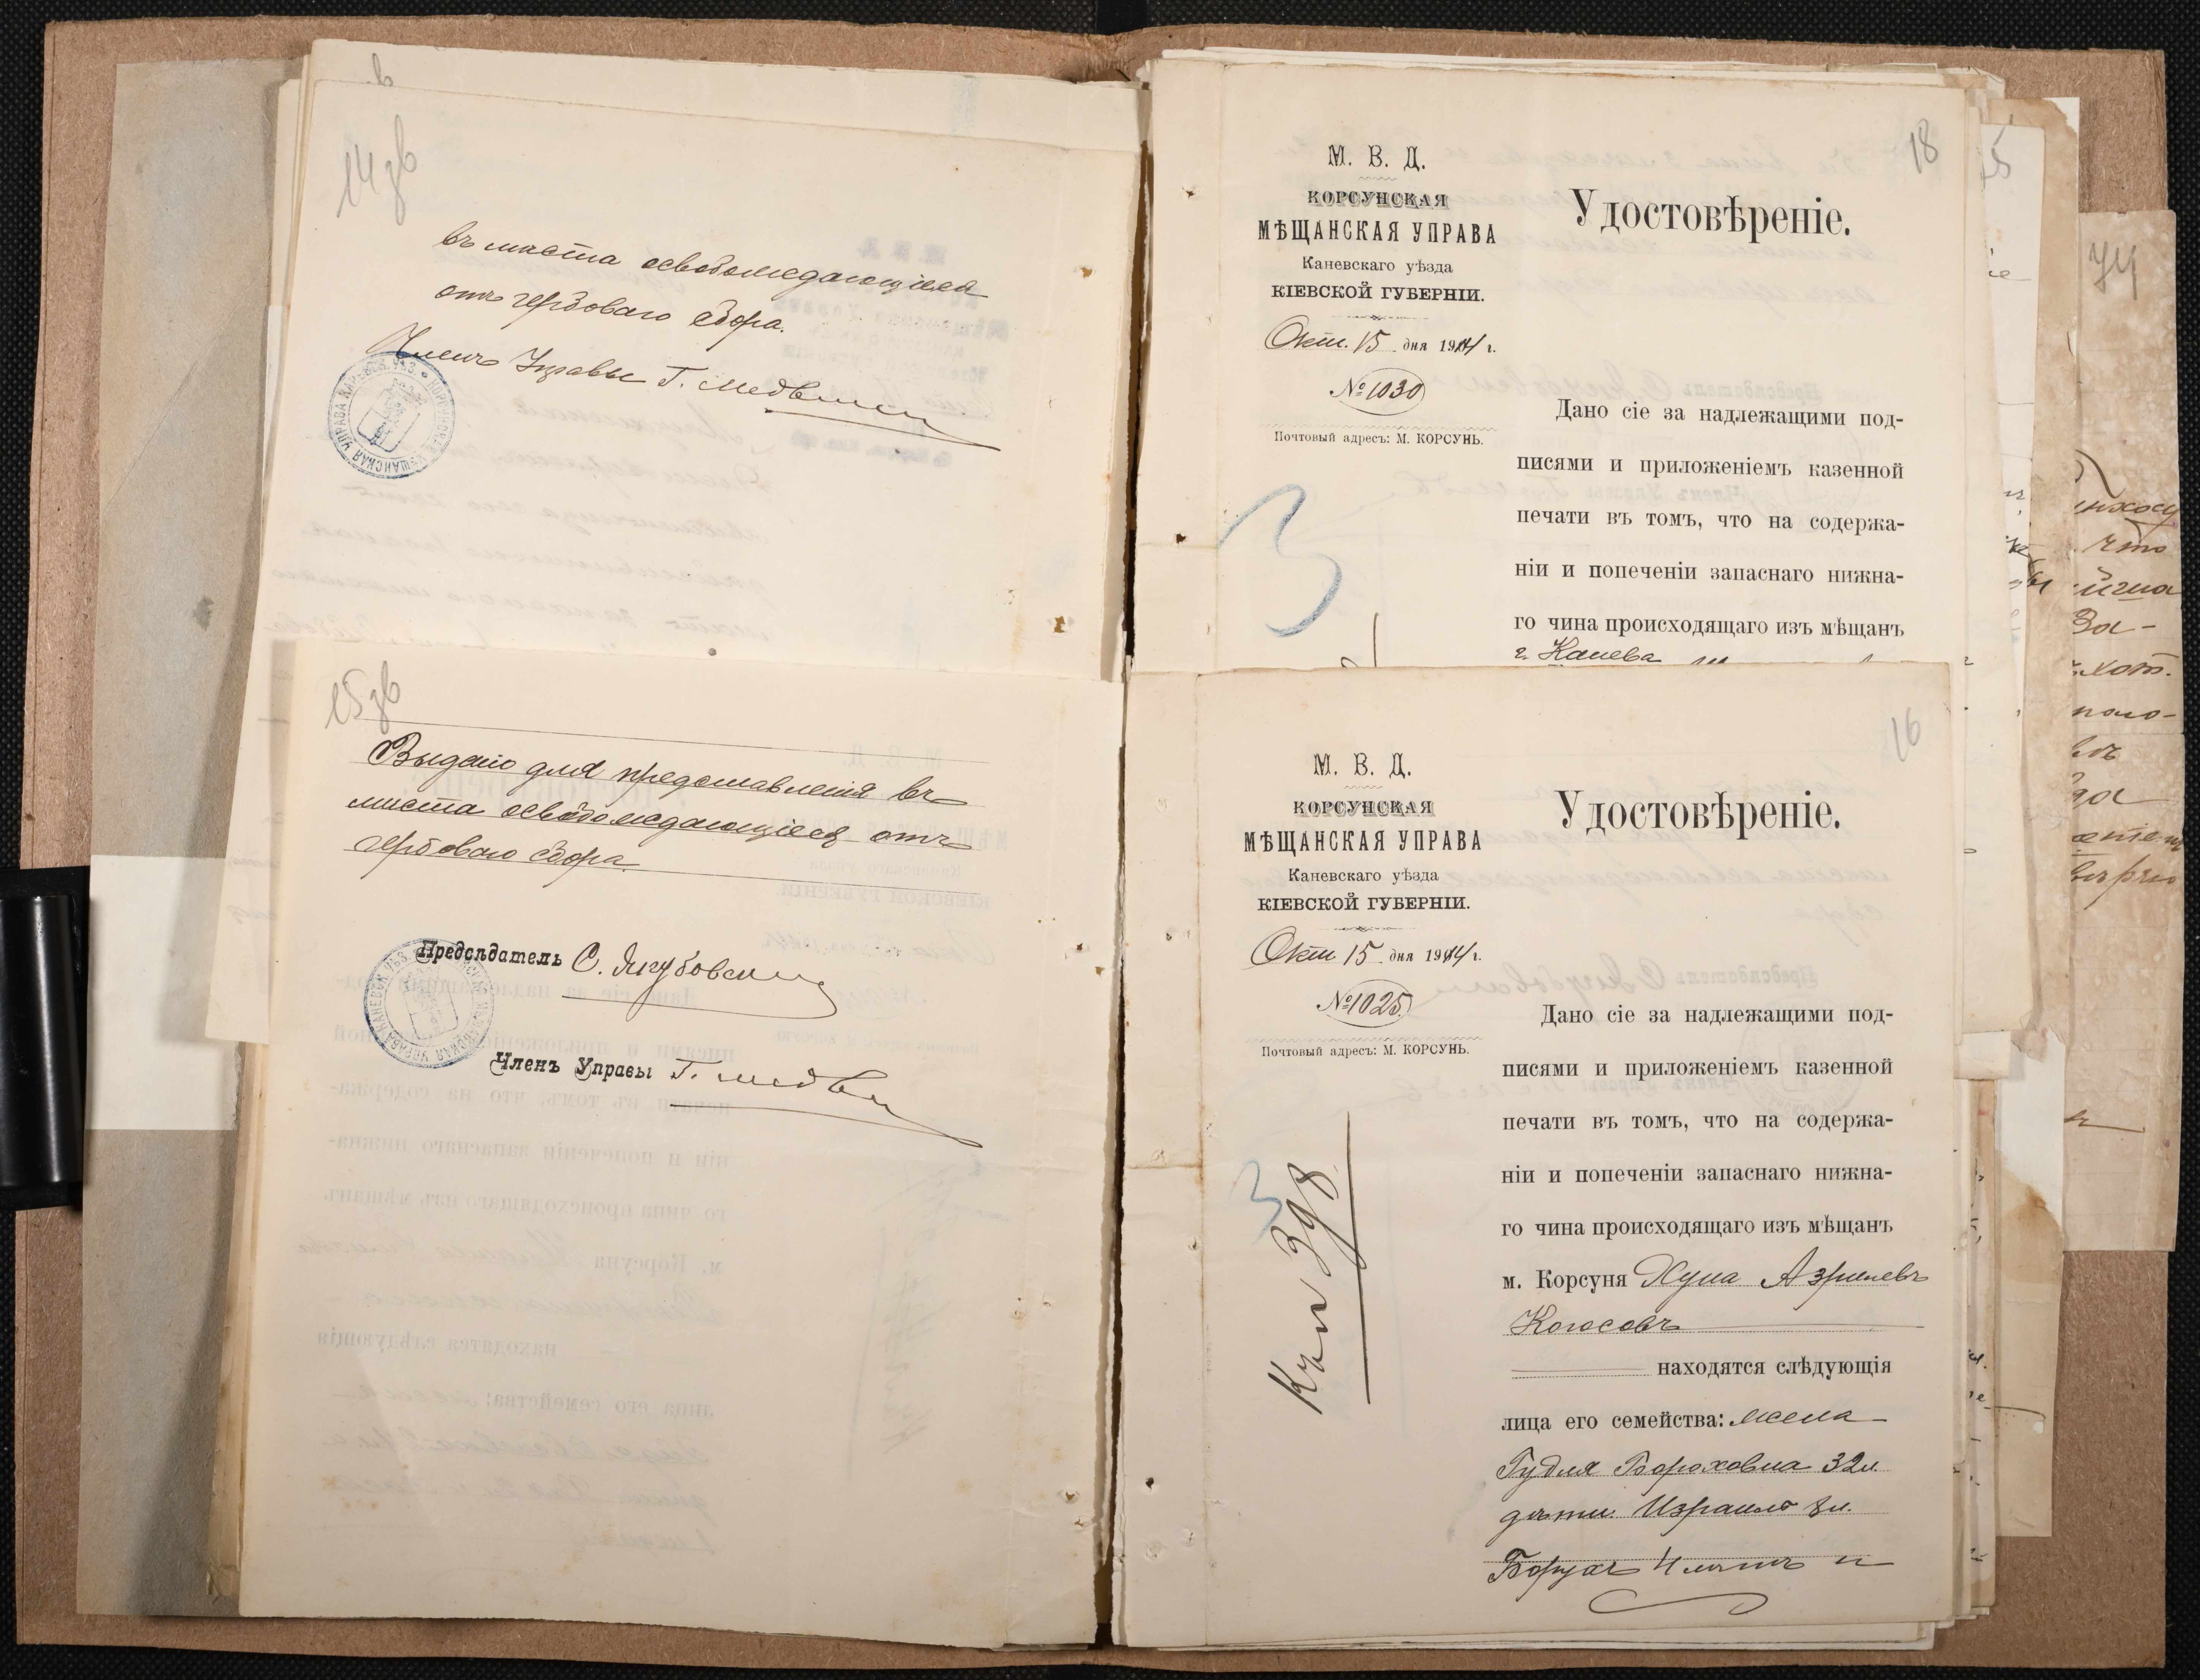 14 зв
въ мѣста освобождающіяся
отъ гербоваго сбора.
Членъ Управы Г. Медв
15 зв
Выдано для представленія въ
мѣста освобождающіяся отъ
гербоваго сбора.
Предсѣдатель С. Якубовскій
Членъ Управы Г. Медв
18
М. В. Д.
КОРСУНСКАЯ
МѢЩАНСКАЯ УПРАВА
Каневскаго уѣзда
КІЕВСКОЙ ГУБЕРНІИ.
Окт. 15 дня 1914 г.
№ 1030
Почтовый адресъ: М. КОРСУНЬ.
Удостовѣреніе.
Дано сіе за надлежащими под-
писями и приложеніемъ казенной
печати въ томъ, что на содержа-
ніи и попеченіи запаснаго нижна-
го чина происходящаго изъ мѣщанъ
г. Канева
3
16
М. В. Д.
КОРСУНСКАЯ
МѢЩАНСКАЯ УПРАВА
Каневскаго уѣзда
КІЕВСКОЙ ГУБЕРНІИ.
Окт 15 дня 1914 г.
№ 1025
Почтовый адресъ: М. КОРСУНЬ.
Удостовѣреніе.
Дано сіе за надлежащими под-
писями и приложеніемъ казенной
печати въ томъ, что на содержа-
ніи и попеченіи запаснаго нижна-
го чина происходящаго изъ мѣщанъ
м. Корсуня Хуна Азрилевъ
Когосовъ
находятся слѣдующія
лица его семейства: жена
Гудля Бороховна 32 л.
дѣти Израиль 8 л.
Борухъ 4 лѣтъ и
3
398